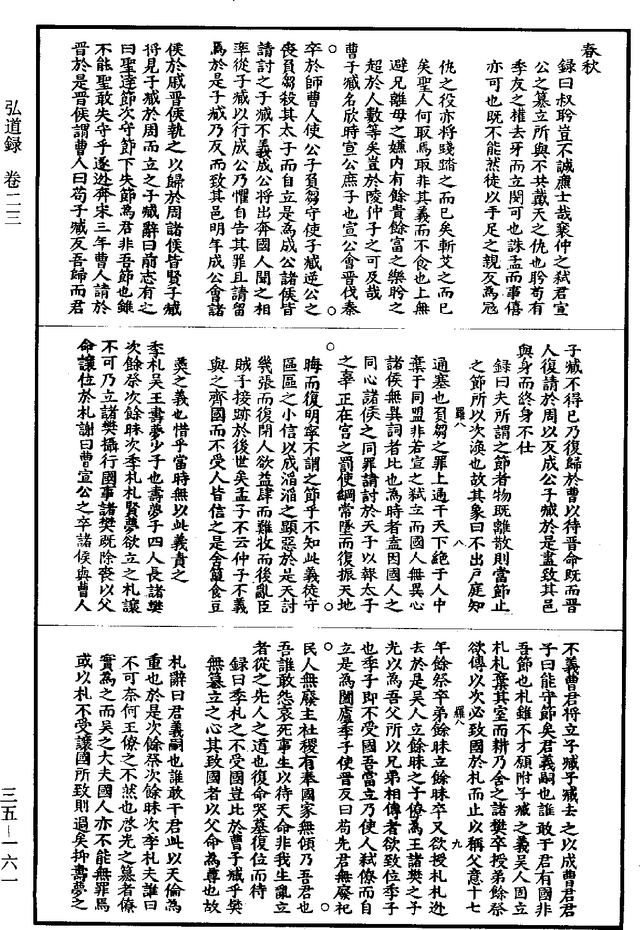 弘道録 卷二三
三五—一六一
春秋
錄曰叔肹豈不誠廉士哉襄仲之弑君宣
公之篡立所與不共戴天之仇也肹苟有
季友之權去牙而立閔可也誅孟而事僖
亦可也既不能然徒以手足之親反為冦
仇之役亦將踐踏之而已矣斬艾之而已
矣聖人何取焉取非其義而不食也上無
避兄離母之嫌內有餘貴餘富之樂肹之
超於人數等矣豈於陵仲子之可及哉
○曹子臧名欣時宣公庶子也宣公會晉伐秦
卒於師曹人使公子負芻守使子臧逆公之
喪負芻殺其太子而自立是為成公諸侯皆
請討之子臧不義成公將出奔國人聞之相
率從子臧以行成公乃懼自告其罪且請留
焉於是子臧乃反而致其邑明年成公會諸
侯於戚晉侯執之以歸於周諸侯皆賢子臧
將見子臧於周而立之子臧辭曰前志有之
曰聖達節次守節下失節為君非吾節也雖
不能聖敢失守乎遂逃奔宋三年曹人請於
晉於是晉侯謂曹人曰苟子臧反吾歸而君
子臧不得已乃復歸於曹以待晉命既而晉
人復請於周以反成公子臧於是盡致其邑
與身而終身不仕
錄曰夫所謂之節者物既離散則當節止
之節所以次渙也故其象曰不出戶庭知
通塞也負芻之罪上通于天下絕于人中
棄于同盟非若宣之弑立而國人無異心
諸侯無異詞者比也為時者盍因國人之
同心諸侯之同罪請討於天子以報太子
之辜正在宮之罰使綱常墜而復振天地
晦而復明寧不謂之節乎不知此義徒守
區區之小信以成滔滔之顯惡於是天討
幾張而復閉人欲益肆而難收而後亂臣
賊子接跡於後世矣孟子不云仲子不義
與之齊國而不受人皆信之是舍簞食豆
羹之義也惜乎當時無以此義責之
○季札吳王壽夢少子也壽夢子四人長諸樊
次餘祭次餘眛次季札札賢夢欲立之札讓
不可乃立諸樊攝行國事諸樊既除喪以父
命讓位於札謝曰曹宣公之卒諸侯與曹人
不義曹君將立子臧子臧去之以成曹君君
子曰能守節矣君義嗣也誰敢干君有國非
吾節也札雖不才願附子臧之義吳人固立
札札棄其室而耕乃舍之諸樊卒授弟餘祭
欲傳以次必致國於札而止以稱父意十七
年餘祭卒弟餘眛立餘眛卒又欲授札札逃
去於是吳人立餘眛之子僚為王諸樊之子
光以為吾父所以兄弟相傳者欲致位季子
也季子即不受國吾當立乃使人弑僚而自
立是為闔廬季子使晉反曰苟先君無廢祀
民人無廢主社稷有奉國家無傾乃吾君也
吾誰敢怨哀死事生以待天命非我生亂立
者從之先人之道也復命哭墓復位而待
錄曰季札之不受國豈比於曹子臧乎樊
無篡立之心其致國者以父命為尊也故
札辭曰君義嗣也誰敢干君此以天倫為
重也於是次餘祭次餘眛次季札夫誰曰
不可奈何王僚之不然也啓光之篡者僚
實為之而吳之大夫國人亦不能無罪焉
或以札不受讓國所致則過矣抑壽夢之